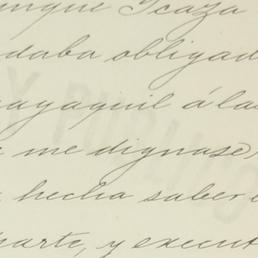 unque Icaza
daba obligad
ayaquil á las
me dignase,
hecha saber
parte, y execut